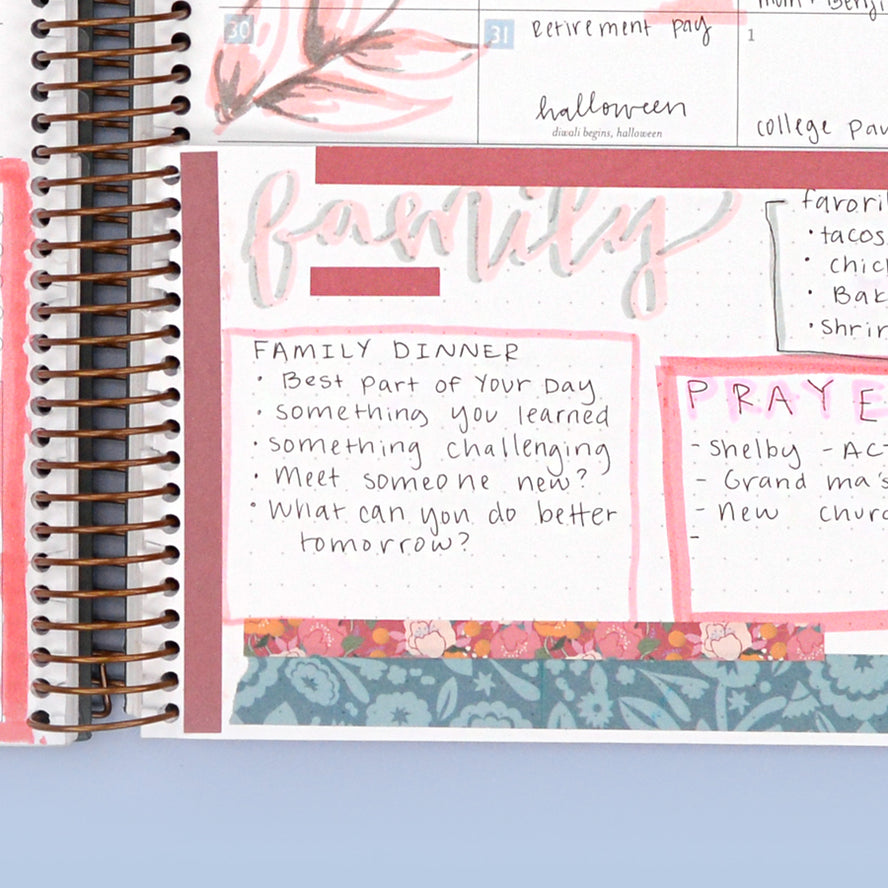 30
31
Retirement pay
1
halloween
diwali begins, halloween
college
family
tacos
FAMILY DINNER
• Best part of Your Day
• something you learned
• something challenging
• Meet someone new?
• What can you do better
tomorrow?
- Shelby
- Grand ma's
- New
-